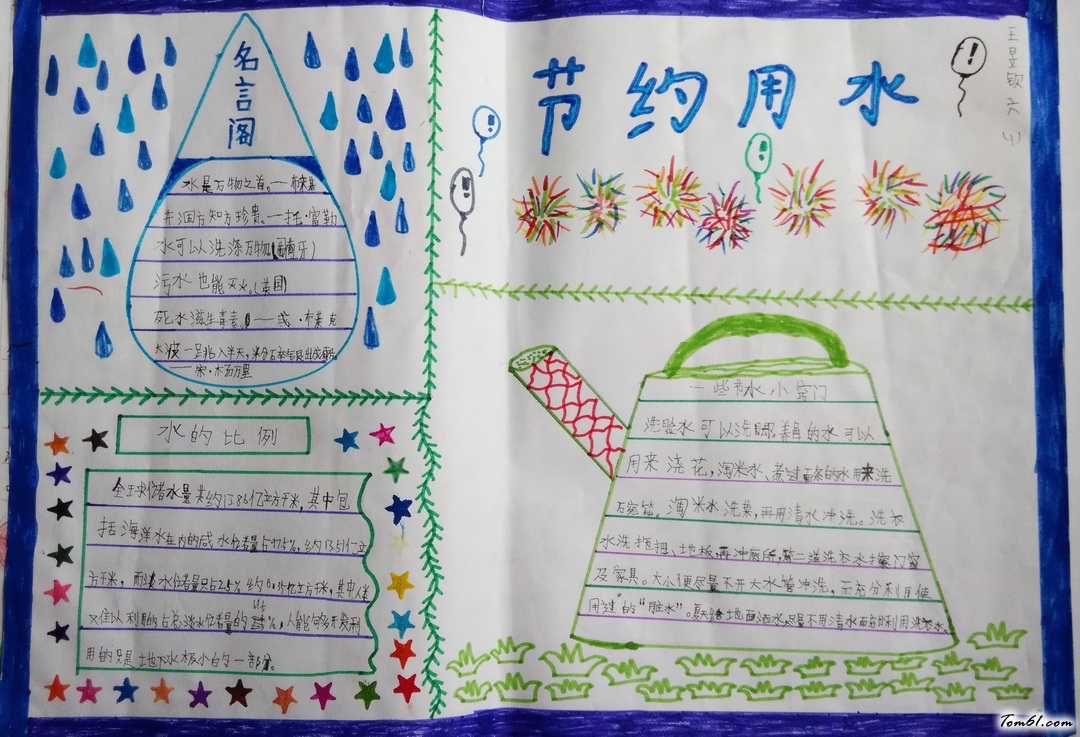 名言阁
水是万物之首。——布莱基
井涸方知方珍贵。——托·富勒
水可以洗涤万物(葡萄牙)
污水也能灭火。(英国)
死水滋生毒素。——威·布莱克
节约用水
王昱钦 六(1)
水的比例
全球储水量共约13.86亿立方千米,其中包
括海洋水在内的咸水储量占97.5%,约13.51亿立
方千米,而淡水储量只占2.5%约0.35亿立方千米,其中人类
又难以利用的占总淡水储量的%,人能够多开发利
用的只是地下水极小的一部分。
一些节水小窍门
洗脸水可以洗脚,养鱼的水可以
用来浇花,淘米水、煮过面条的水用来洗
碗筷。淘米水洗菜,再用清水冲洗。洗衣
水洗拖把、地板,再冲厕所,第二道洗衣水擦门窗
及家具。大小便尽量不开大水管冲洗,而充分利用使
用过的“脏水”。夏天给地面洒水尽量不用清水而充分利用洗衣水。
Tom61.com